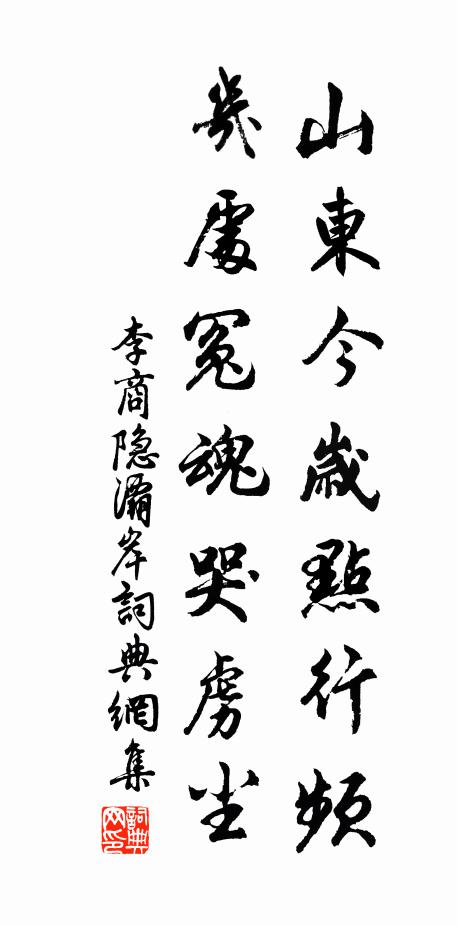 山東今歲點行頻
幾處冤魂哭虜塵
李商隐灞岸詞典網集
詞典网印